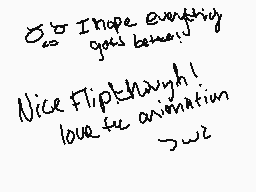 I hope everything
goes better!
Nice Flip though!
love the animation